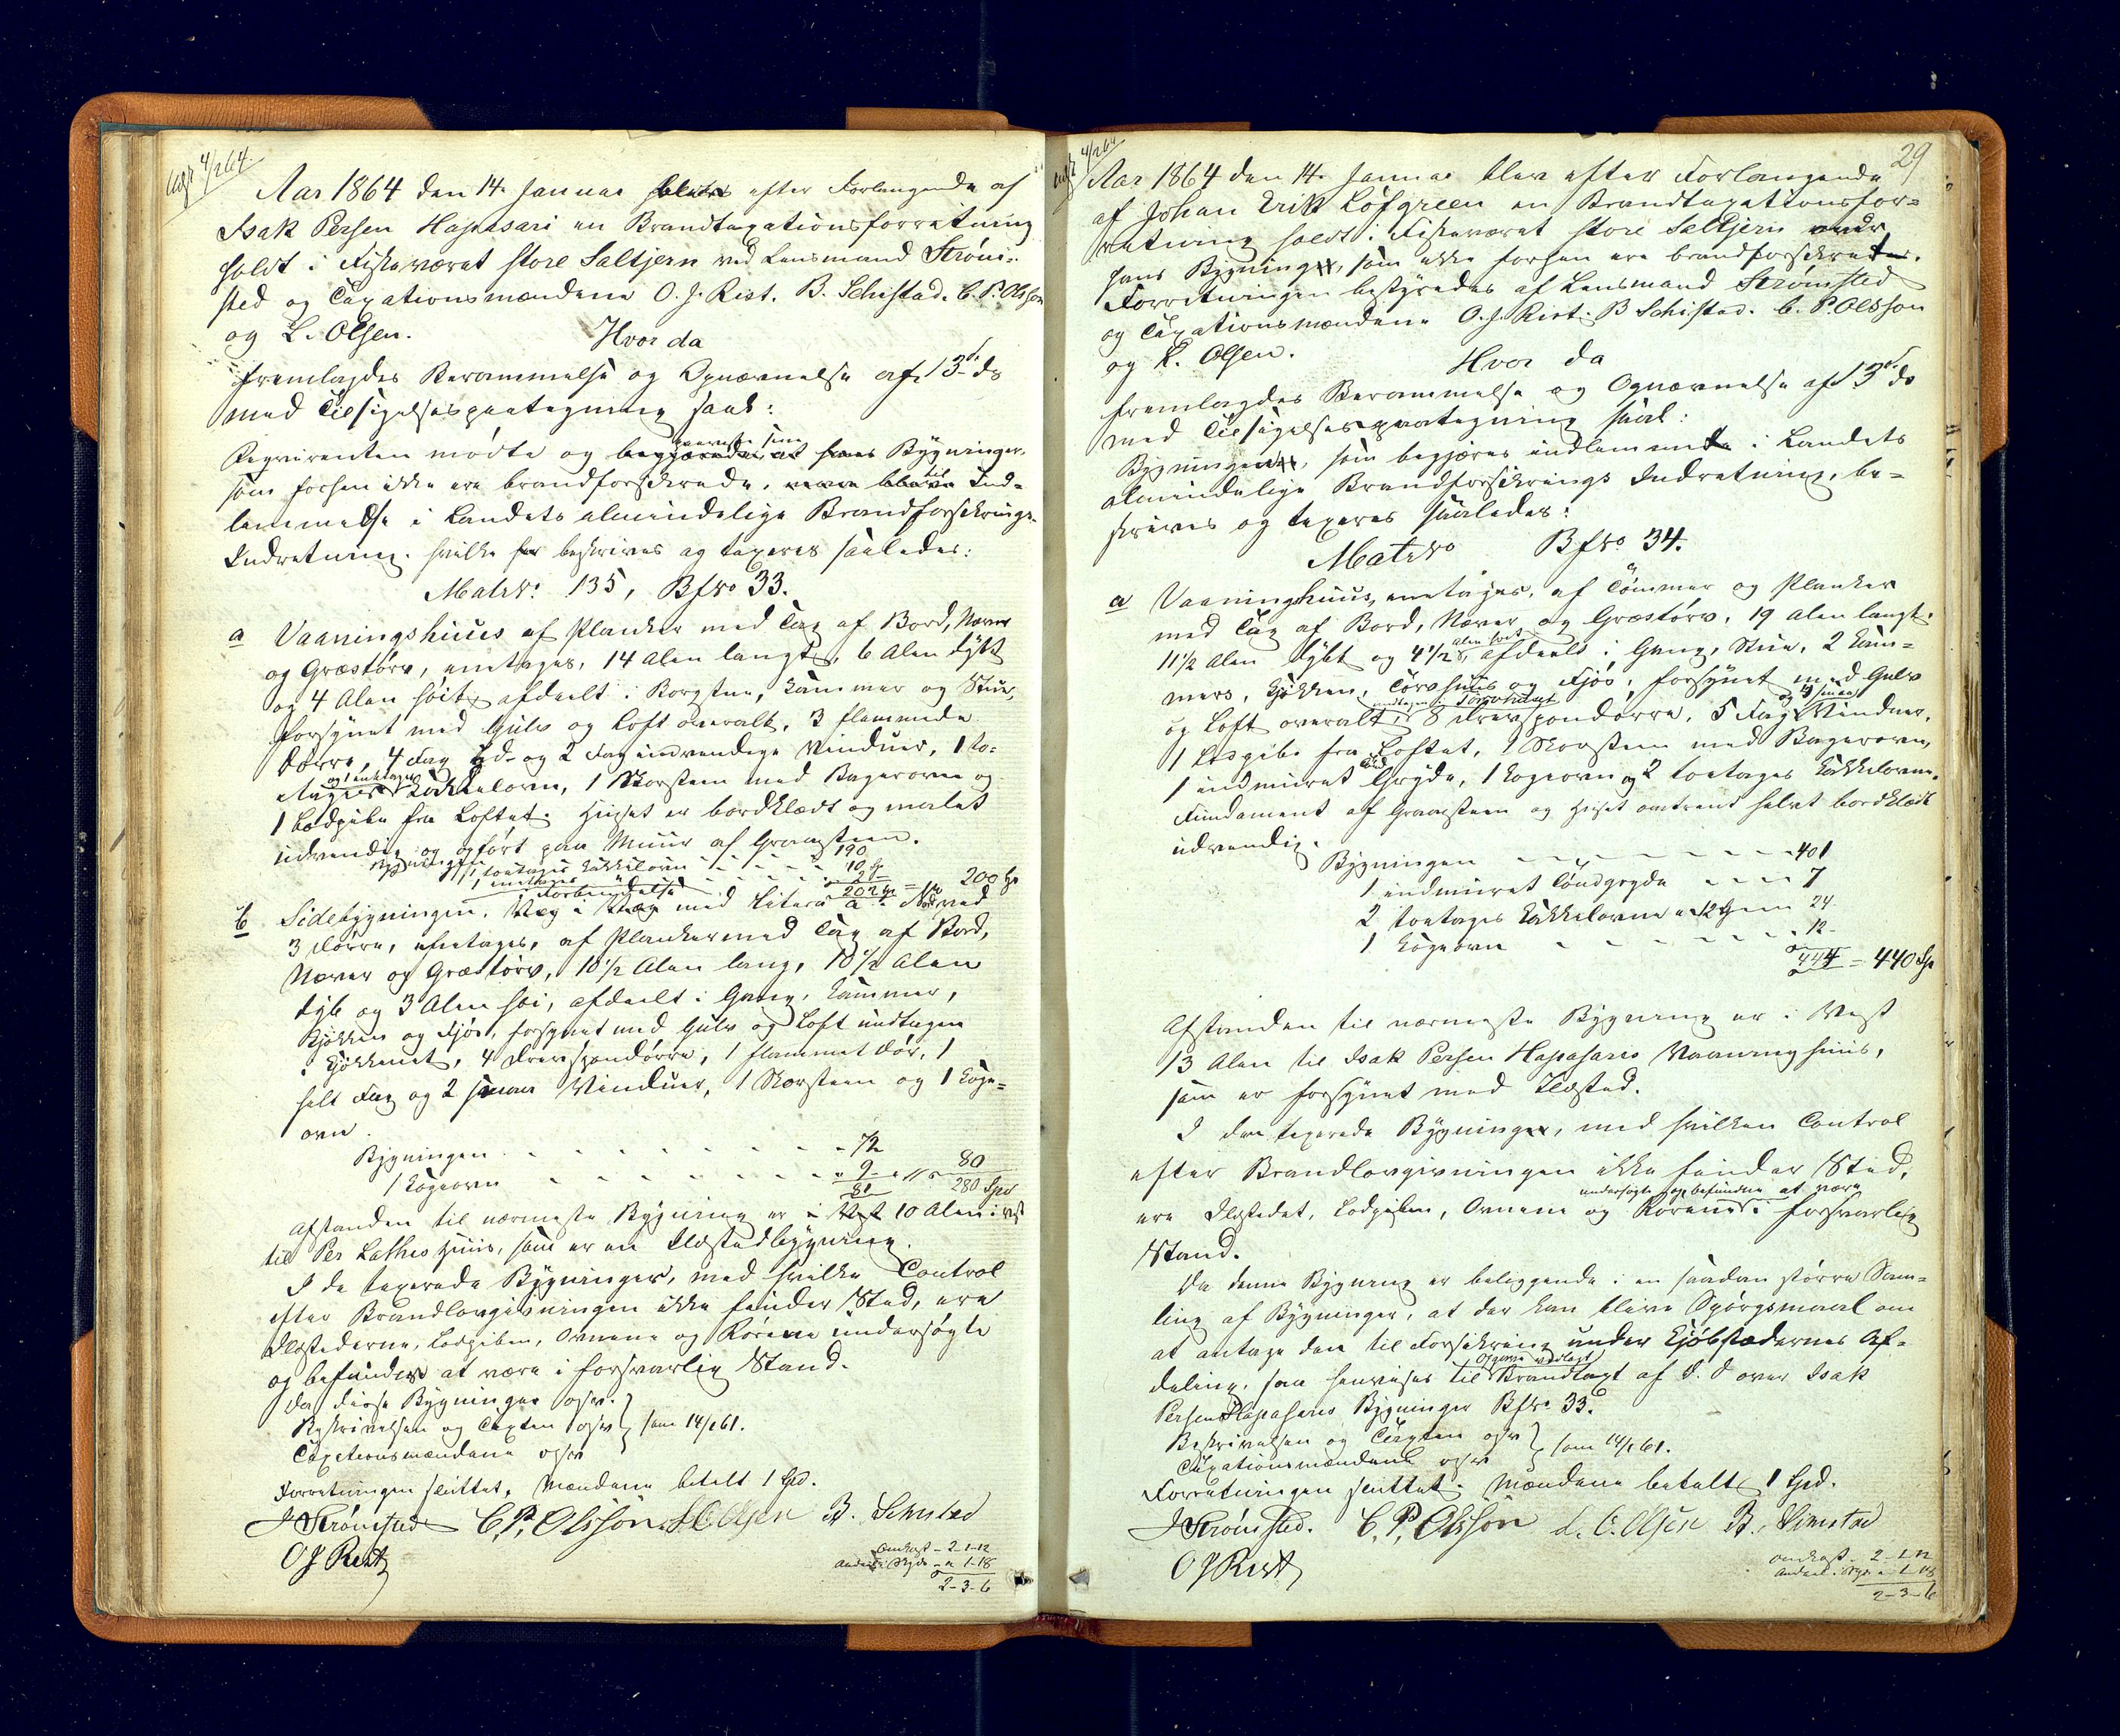 Udf 4/2 64.
Aar 1864 den 14. Januar blev efter Forlangende af
Isak Persen Hapasari en Brandtaxationsforretning
holdt i Fiskeværet store Saltjern ved Lensmand Strøm-
sted og Taxationsmændene O. J. Rist. B. Schistad. C. P. Olsson
og L. Olsen. Hvor da
fremlagdes Berammelse og Opnævnelse af 13 ds
med Tilsigelsespaategning saal:
Reqvirenten mødte og paaviste sine Bygninger,
som forhen ikke ere brandforsikrede, til Ind-
lemmelse i Landets almindelige Brandforsikrings-
Indretning. hvilke beskrives og taxeres saaledes:
Matr№ 135, Bf№ 33.
a Vaaningshuus af Planker med Tag af Bord, Næver
og Græstørv, eenetages, 14 Alen langt, 6 Alen dybt
og 4 Alen høit, afdeelt i Borgstue, Kammer og Stue,
forsynet med Gulv og Loft overalt, 3 flammede
Dørre, 4 Fag Ud- og 2 Fag indvendige Vinduer, 1 to-
etages og 1 enetages Kakkelovn, 1 Skorsteen med Bagerovn og
1 Lodpibe fra Loftet. Huset er bordklædt og malet
udvendig og opført paa Muur af Graasteen.
Bygningen 190
1 toetages Kakkelovn 10 Sp
1 enetages 2
202 Sp = 200 Sp
b Sidebygningen, Væg i Væg med Litera a i Forbindelse ved
3 Dørre, eenetages, af Planker med Tag af Bord,
Næver og Græstørv, 10½ Alen lang, 10½ Alen
dyb og 3 Alen høi, afdeelt i Gang, Kammer,
Kjøkken og Fjøs, forsynet med Gulv og Loft undtagen
i Kjøkkenet, 4 Drevspondørre, 1 flammet Dør, 1
helt Fag og 2 smaa Vinduer, 1 Skorsteen og 1 Koge-
ovn.
Bygningen 72
1 Kogeovn 9 80
81 280 Spd
Afstanden til nærmeste Bygning er 10 Alen i Vest
til Per Lathes Huus, som er en Ildstedbygning.
I de taxerede Bygninger, med hvilke Control
efter Brandlovgivningen ikke finder Sted, ere
Ildstederne, Lodpiben, Ovnene og Rørene undersøgte
og befundne at være i forsvarlig Stand.
Da disse Bygninger osv.
Beskrivelsen og Taxten osv } som 14/1 61.
Taxationsmændene osv
Forretningen sluttet. Mændene betalt 1 Spd.
J Strømsted C. P. Olsson L. O. Olsen B. Schistad
O J Rist
Omkost - 2-1-12
Andeel i Skyds - " 1-18
2-3-6
29
Udf 4/2 64
Aar 1864 den 14. Januar blev efter Forlangende
af Johan Erik Löfgreen en Brandtaxationsfor-
retning holdt i Fiskeværet store Saltjern over
hans Bygning, som ikke forhen er brandforsikret.
Forretningen bestyredes af Lensmand Strømsted
og Taxationsmændene O. J. Rist. B Schistad. C. P. Olsson
og L. Olsen. Hvor da
fremlagdes Berammelse og Opnævnelse af 13 ds
med Tilsigelsespaategning saal:
Bygningen, som begjæres indlemmet i Landets
almindelige Brandforsikrings Indretning, be-
skrives og taxeres saaledes:
Matr№ Bf№ 34.
a Vaaningshuus, eenetages, af Tømmer og Planker
med Tag af Bord, Næver og Græstørv, 19 Alen langt,
11½ Alen dybt og 4½ Alen høit, afdeelt i Gang, Stue, 2 Kam-
mers, Kjøkken, Tørvhuus og Fjøs, forsynet med Gulv
og Loft overalt undtagen i Tørvhuset, 8 Drevspondørre, 5 Fag og 4 smaa Vinduer,
1 Lodpibe fra Loftet, 1 Skorsteen med Bagerovn,
1 indmuret Gryde, 1 Kogeovn og 2 toetages Kakkelovne.
Fundament af Graasteen og Huset omtrent halvt bordklædt
udvendig.
Bygningen 401
1 indmuret Tøndgryde 7
2 toetages Kakkelovne a 12 Sp 24
1 Kogeovn 12
444 = 440 Sp
Afstanden til nærmeste Bygning er i Vest
13 Alen til Isak Persen Hapasaris Vaaningshuus,
som er forsynet med Ildsted.
I den taxerede Bygning, med hvilken Control
efter Brandlovgivningen ikke finder Sted,
ere Ildstedet, Lodpiben, Ovnene og Rørene undersøgte og befundne at være i forsvarlig
Stand.
Da denne Bygning er beliggende i en saadan større Sam-
ling af Bygninger, at der kan blive Spørgsmaal om
at antage den til Forsikring under Kjøbstædernes Af-
deling, saa henvises til Brandtaxt af D. D over Isak
Persen Hapasaris Bygninger Bf№ 33.
Beskrivelsen og Taxten osv } som 14/1 61.
Taxationsmændene osv
Forretningen sluttet. Mændene betalt 1 Spd.
J Strømsted. C. P. Olsson L. O. Olsen B. Schistad
O J Rist
Omkost - 2-1-12
Andeel i Skyds - " 1-18
2-3-6